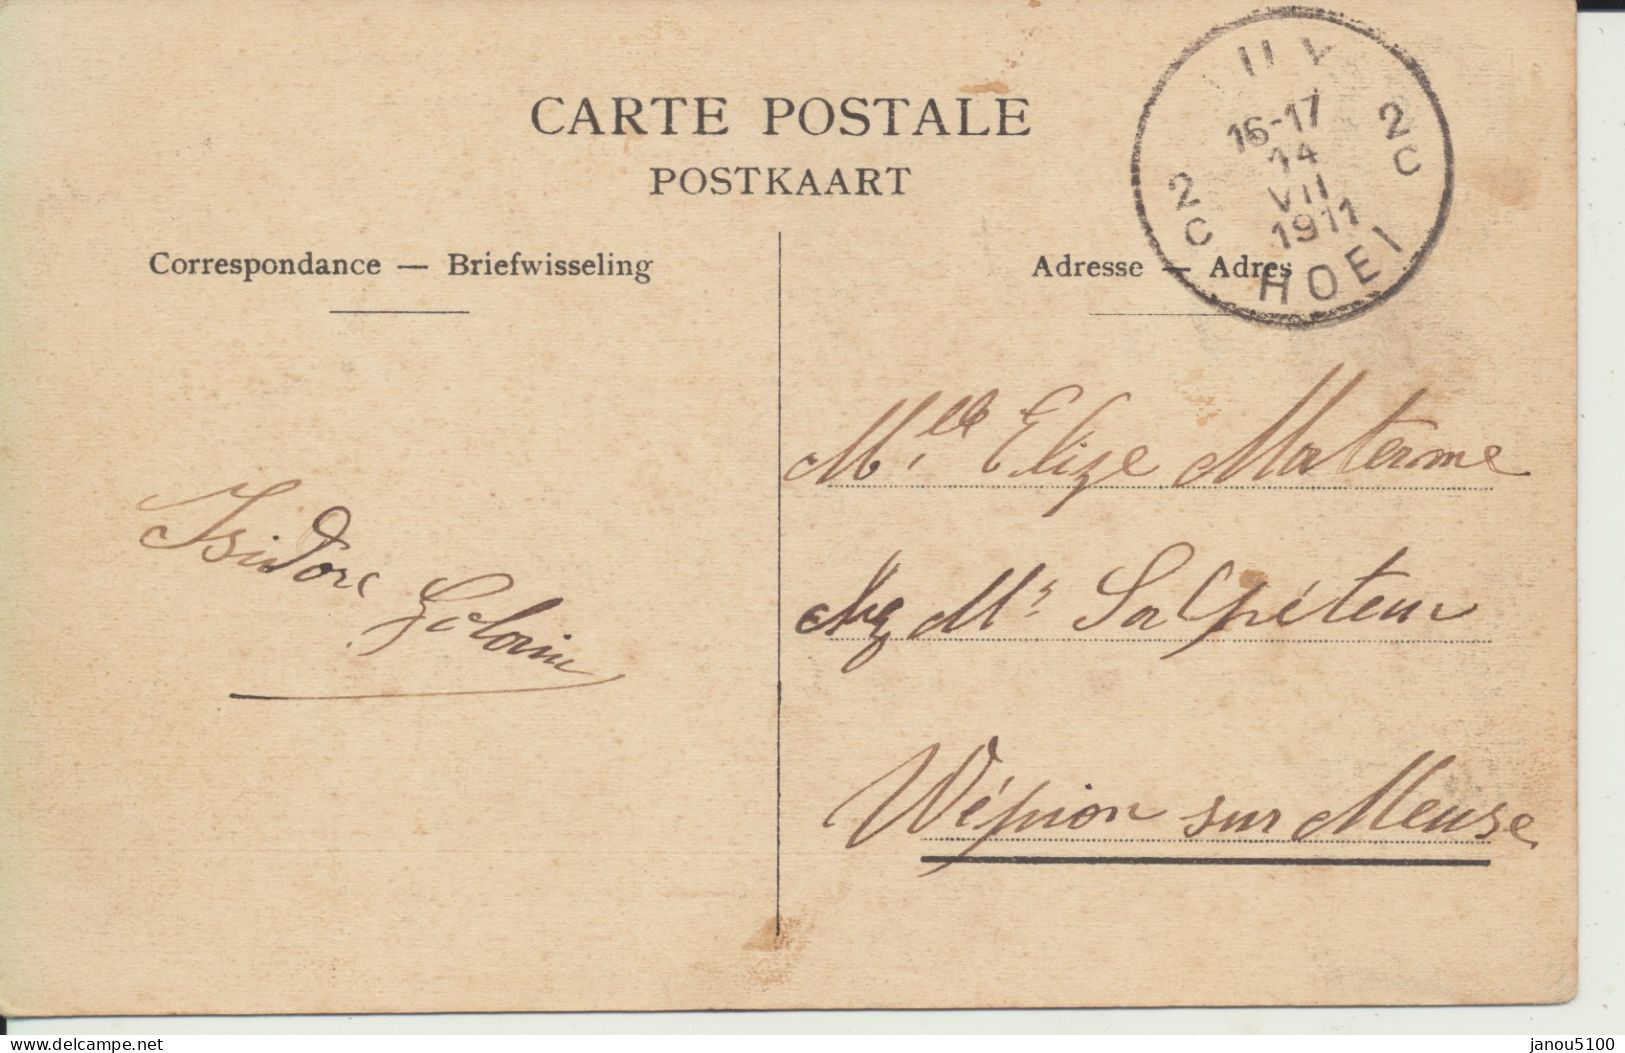 CARTE POSTALE
POSTKAART
HUY
16-17
14
VII
1911
2C
2C
HOEI
Correspondance — Briefwisseling
Adresse — Adres
Mlle Elize Materme
chez Mr Salpéteur
Wépion sur Meuse
Isidore
www.delcampe.net
janou5100